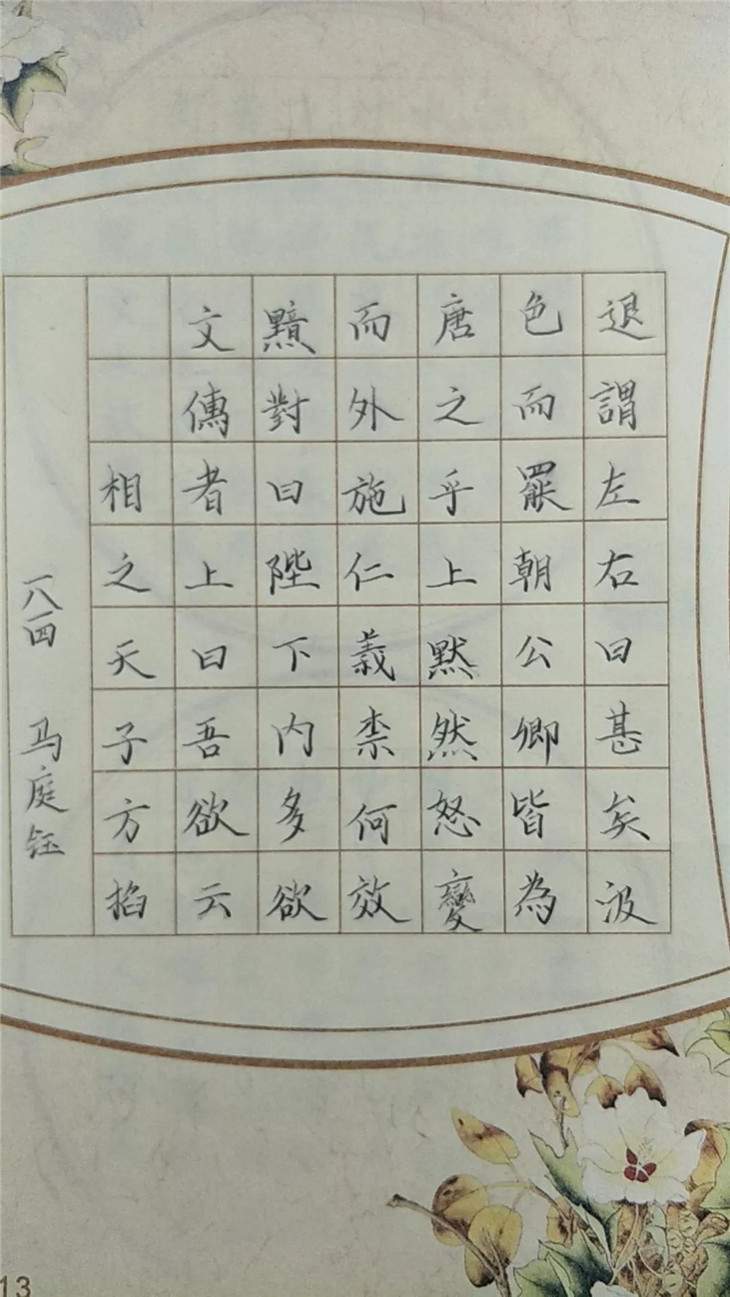 退謂左右曰甚矣汲
色而罷朝公卿皆為
唐之乎上默然怒變
而外施仁義柰何效
黯對曰陛下内多欲
文傳者上曰吾欲云
相之天子方招
一八四 马庭钰
13